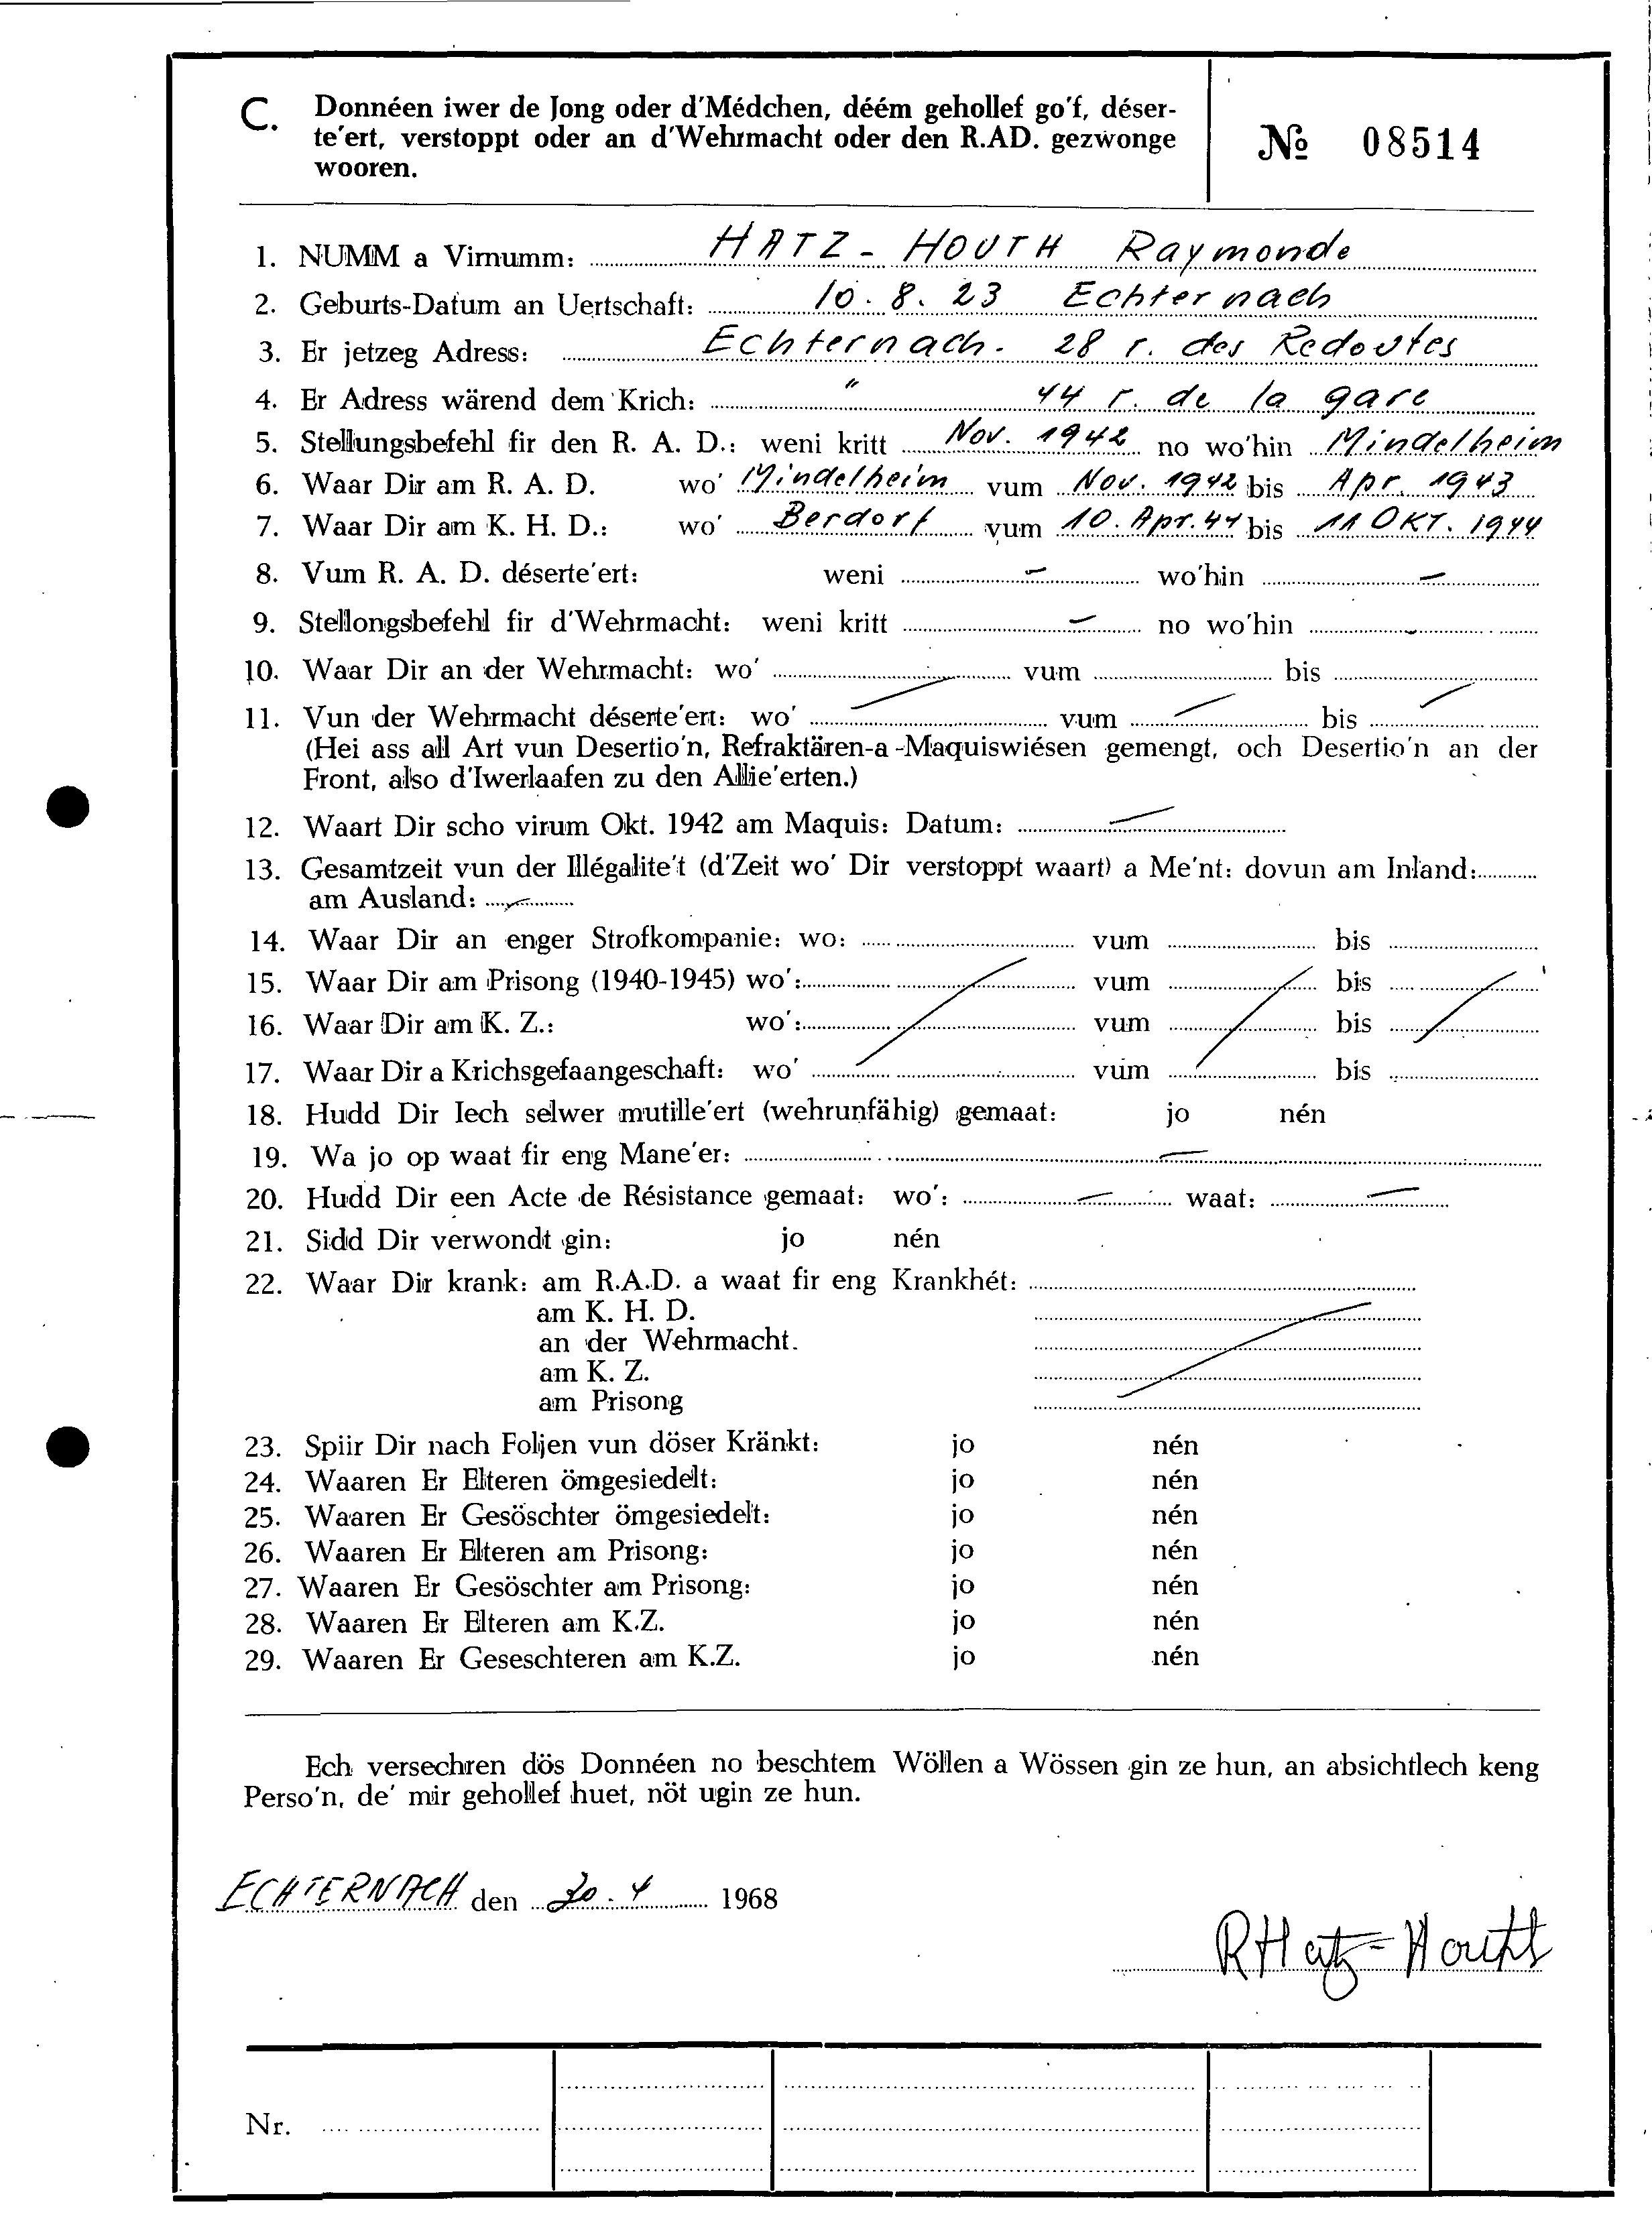 C. Donnéen iwer de Jong oder d'Médchen, déém gehollef go'f, déser-
te'ert, verstoppt oder an d'Wehrmacht oder den R.AD. gezwonge
wooren.
№ 08514
1. NUMM a Virnumm: HATZ - HOUTH Raymonde
2. Geburts-Datum an Uertschaft: 10. 8. 23 Echternach
3. Er jetzeg Adress: Echternach. 28 r. des Redoutes
4. Er Adress wärend dem Krich: " 44 r. de la gare
5. Stellungsbefehl fir den R. A. D.: weni kritt Nov. 1942 no wo'hin Mindelheim
6. Waar Dir am R. A. D. wo' Mindelheim vum Nov. 1942 bis Apr. 1943
7. Waar Dir am K. H. D.: wo' Berdorf vum 10. Apr. 44 bis 11 OKT. 1944
8. Vum R. A. D. déserte'ert: weni – wo'hin –
9. Stellongsbefehl fir d'Wehrmacht: weni kritt – no wo'hin -
10. Waar Dir an der Wehrmacht: wo' vum bis
11. Vun der Wehrmacht déserte'ert: wo' vum bis
(Hei ass all Art vun Desertio'n, Refraktären-a-Maquiswiésen gemengt, och Desertio'n an der
Front, also d'Iwerlaafen zu den Allie'erten.)
12. Waart Dir scho virum Okt. 1942 am Maquis: Datum: –
13. Gesamtzeit vun der Illégalite't (d'Zeit wo' Dir verstoppt waart) a Me'nt: dovun am Inland:
am Ausland: –
14. Waar Dir an enger Strofkompanie: wo: vum bis
15. Waar Dir am Prisong (1940-1945) wo': vum bis
16. Waar Dir am K. Z.: wo': vum bis
17. Waar Dir a Krichsgefaangeschaft: wo' vum bis
18. Hudd Dir Iech selwer mutille'ert (wehrunfähig) gemaat: jo nén
19. Wa jo op waat fir eng Mane'er: –
20. Hudd Dir een Acte de Résistance gemaat: wo': – waat: –
21. Sidd Dir verwondt gin: jo nén
22. Waar Dir krank: am R.A.D. a waat fir eng Krankhét:
am K. H. D.
an der Wehrmacht.
am K. Z.
am Prisong
23. Spiir Dir nach Foljen vun döser Kränkt: jo nén
24. Waaren Er Elteren ömgesiedelt: jo nén
25. Waaren Er Gesöschter ömgesiedelt: jo nén
26. Waaren Er Elteren am Prisong: jo nén
27. Waaren Er Gesöschter am Prisong: jo nén
28. Waaren Er Elteren am K.Z. jo nén
29. Waaren Er Geseschteren am K.Z. jo nén
Ech versechren dös Donnéen no beschtem Wöllen a Wössen gin ze hun, an absichtlech keng
Perso'n, de' mir gehollef huet, nöt ugin ze hun.
ECHTERNACH den 20. 4 1968
RHatz=Houth
Nr.